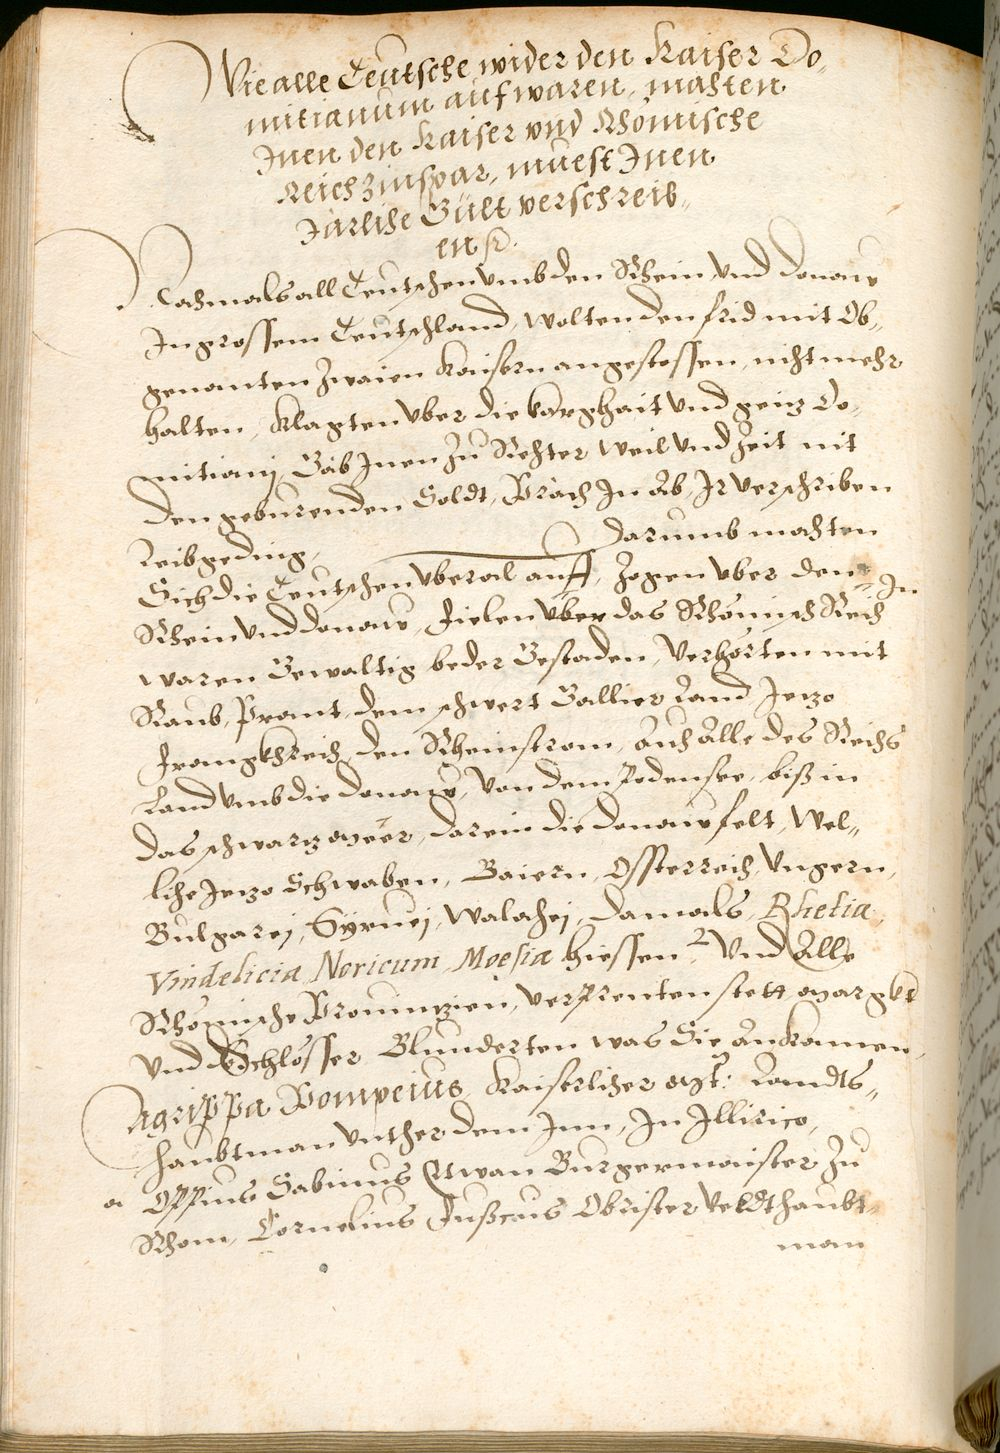 Wie alle Teutsche wider den Kaiser Do„
mitianum auf waren, machten
Inen den Kaiser vnd Rhömische
Reich zinspar, muest Inen
Järliche Gült verschreib„
en ꝛc.
Nachmals all Teutschen vmb den Rhein vnd Donaw
In grossem Teutschland, wolten den frid mit Ob„
genanten zwaien Kaisern angestossen, nicht mehr
halten, Klagten vber die kargheit vnd geiz Do„
mitianj, Gab Inen zu Rechter weil vnd Zeit nit
den geburenden Soldt, Prach In ab, Ir verschriben
Leibgeding, Darumb machten
Sich die Teutschen vberal auff, zogen vber den
Rhein vnd Donaw, fielen vber das Rhömisch Reich In
waren Gewaltig beder Gestaden, Verhörten mit
Raub, Prant, dem schwert Gallier Land, Jenzo
Frangkhreich, den Rheinstrom, auch Alle des Reichs
Land vmb die Donaw, Von dem Podensee, biß in
das schwarz meer, darein die Donaw felt, Wel„
liche Jenzo Schwaben, Baiern, Ossterreich, Vngern,
Bulgarej, Syruej, Walachej, damals, Rhetia,
Vindelicia, Noricum, Moesia hiessen, Vnd Alle
Rhömische Prouinzien, verprenten stett, margkt
Vnd Schlösser, Blunderten was Sie ankamen,
Agrippa Pompeius, Kaiserlicher Mt: Landts„
haubtman vnther dem Inn, In Illirico,
Oppius Sabinus Etwan Burgermaister zu
Rhom, Cornelius Fuscus Obrister Veldthaubt„
man